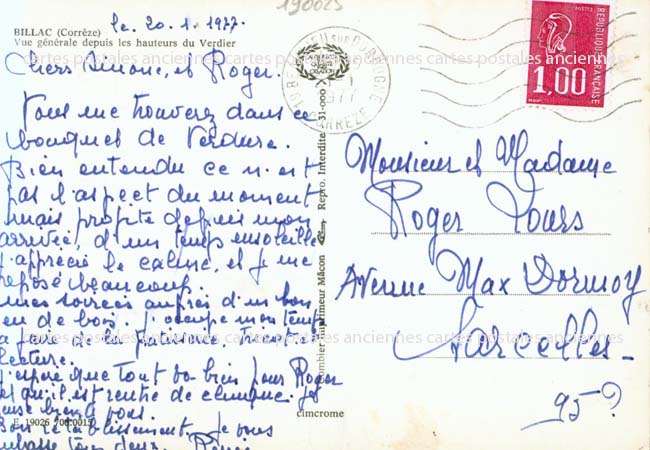 190025
le. 20.1.1977.
BILLAC (Corrèze)
Vue générale depuis les hauteurs du Verdier
Chers Simone, et Roger.
Vous me trouverez dans ce
bouquet de Verdure.
Bien entendu ce n'est
pas l'aspect du moment
mais profite depuis mon
arrivée, d'un temps ensoleillé
j'apprécie le calme, et je me
repose beaucoup.
mes soirées auprès d'un bon
feu de bois. J'occupe mon temps
à faire de la patisserie, tricot et
lecture.
J'espère que tout va bien pour Roger
et qu'il est rentré de clinique. Je
pense bien à vous.
Bon rétablissement. Je vous
embrasse tous deux. Renée
E 19026 700.0015
cimcrome
Combier Imprimeur Mâcon
Repro. Interdite 31-000
SUR DORDOGNE
CORRÈZE
REPUBLIQUE FRANÇAISE
1,00
Monsieur et Madame
Roger Tours
Avenue Max Dormoy
Sarcelles-
95?
cartes postales anciennes cartes postales anciennes cartes postales anciennes
cartes postales anciennes cartes postales anciennes cartes postales anciennes